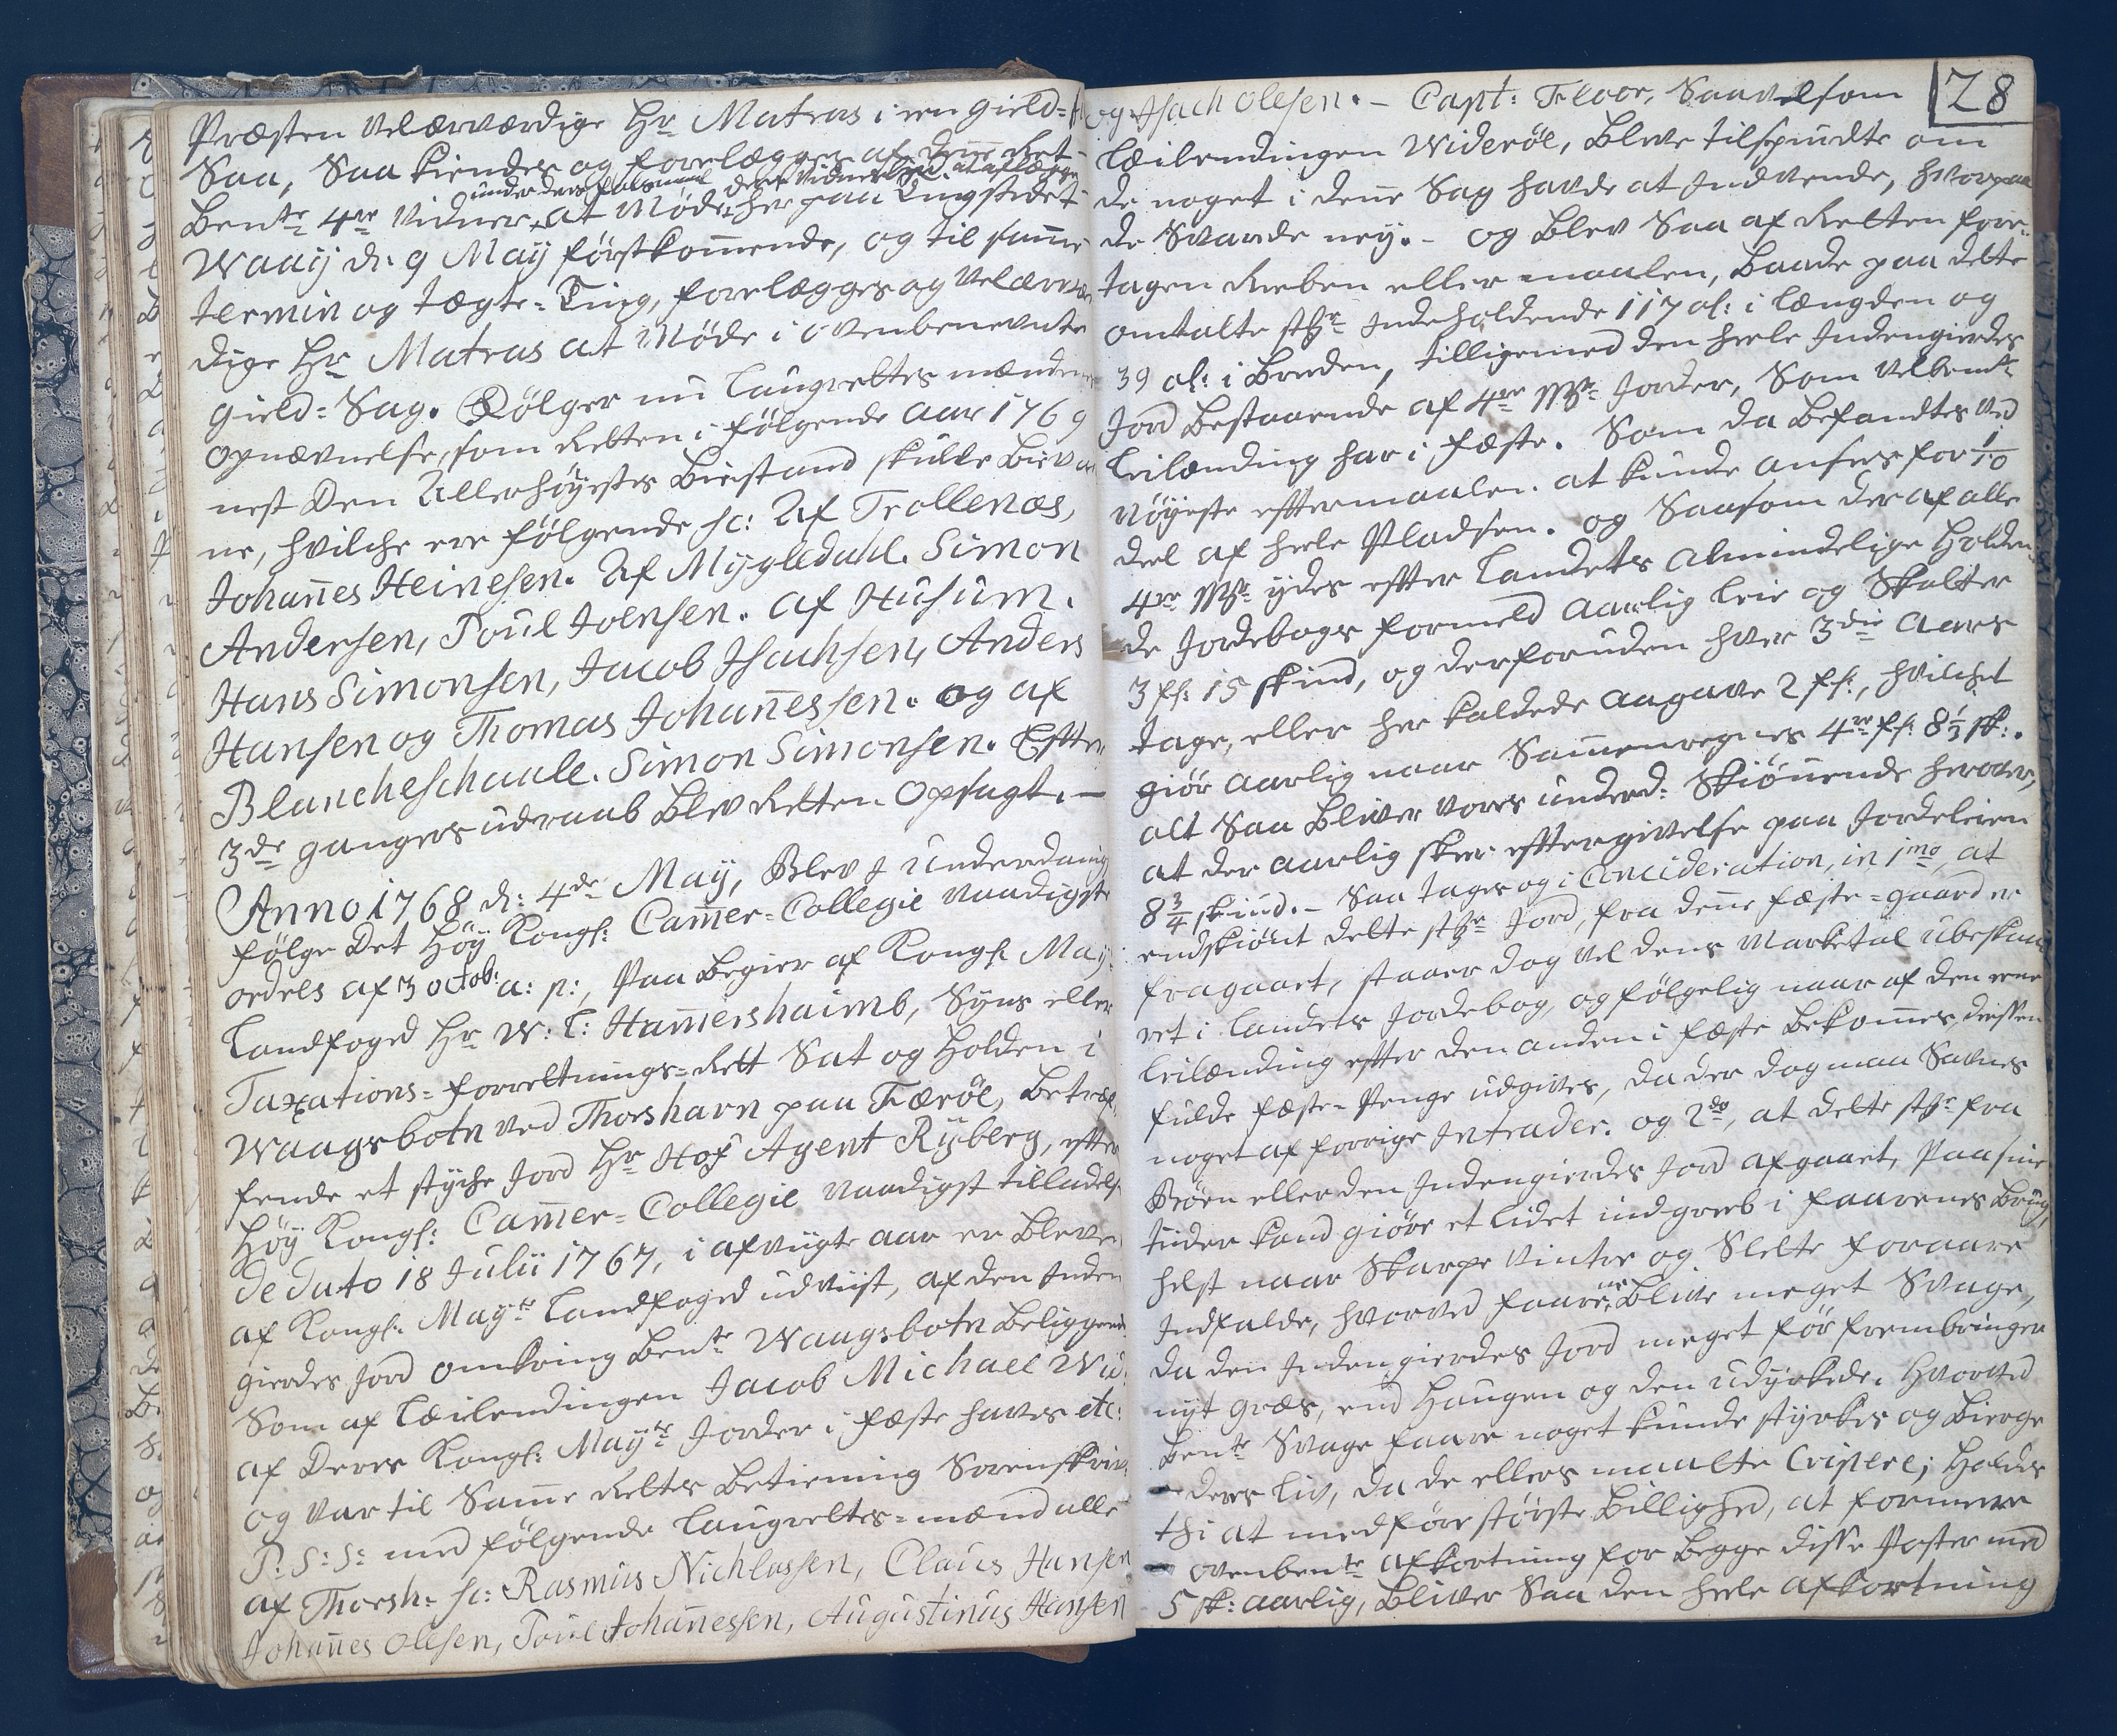 Præsten Velærværdige Hr Matras i en gield=
Saa, Saa kiendes og forelægges af denne Ret
under deres faldsmaal deres vidnesbyrd at aflægge
Bente 4re Vidner, at Møde her paa Tingstedet
Waaÿ d: 9 Maÿ førstkommende, og til samme
termin og Tægte=Ting, forelægges og Velærvær
dige Hr Matras at Møde i ovenbenevnte
gield=Sag. Følger nu Laugrettes mændenes
opnævnelse, som Retten i følgende aar 1769
nest Den Allerhøÿestes Biestand skulle Bievaa
ne, hvilche ere følgende sc: Af Trollenæs,
Johannes Heinesen. Af Mÿgledahl. Simon
Andersen, Poul Joensen. af Husum.
Hans Simonsen, Jacob Jsachsen, Anders
Hansen og Thomas Johannessen. og af
Blancheschaale. Simon Simonsen. Efter
3de gangers udraab Blev Retten Opsagt. –
Anno 1768 d: 4de Maÿ, Blev J underdanig
følge Det Høÿ Kongl: Cammer=Collegie Naadigste
ordels af 3 octob: a: p:, Paa Begier af Kongl Maÿ:
Landfoged Hr W: C: Hammershaimb, Sÿns eller
Taxations=forrettnings=Rett Sat og Holden i
Waagsbotn ved Thorshavn paa Færöe, Betref
fende et stÿche Jord Hr Hof Agent Rÿberg, efter
Høÿ Kongl: Cammer=Collegie Naadigst tilladelse
de Dato 18 Julii 1767, i afvigte aar er Bleven
af Kongl: Maÿts Landfoged udviist, af den Inden
gierdes Jord omkring Bente Waagsbotn Beliggende
Som af Læilendingen Jacob Michael Wid:
af Deres Kongl: Maÿts Jorder i fæste haves etc:
og var til Samme Retts Betiening Sorenskriv:
P: S: S: med følgende Laugrettes=mænd alle
af Thorsh: sc: Rasmus Nichlassen, Claus Hansen
Johannes Olesen, Poul Johannessen, Augustinus Hansen
28
og Jsach Olesen. – Capt: Floor, Saavelsom
Læilendingen Widerøe, Bleve tilspurdte om
de noget i denne Sag havde at Indvende, hvorpaa
de Svarede neÿ. – og Blev Saa af Retten fore=
tagen Reeben eller maalen, Baade paa dette
omtalte stkr Indeholdende 117 al: i Længden og
39 al: i Breden, tilligemed den heele Indengierdes
Jord Bestaaende af 4re Mkr Jorder, Som Velbemte
Leilænding har i fæste. Som da Befandtes ved
Nöÿeste efftermaalen at kunde ansees for 1/10
deel af heele Pladsen. og Saasom der af alle
4re Mkr ÿdes effter Landets Almindelige Holden=
de Jordebogs formeld aarlig Leie og Skatter
3 fs: 15 skind, og derforuden hver 3die Aars
tage, eller her kaldede aagave 2 fs:, hvilchet
giör aarlig naar Sammenregnes 4re fs: 8 1/3 sk:.
alt Saa Bliver vores underd: Skiønnende herover,
at der aarlig skeer efftergivelse paa Jordeleien
8 3/4 skind. – Saa tages og i Concideration, in 1mo, at
endskiönt dette stkr Jord, fra denne fæste=gaard er
fragaaet, staaer dog vel dens Marketal ubeskaa=
ret i Landets Jordebog, og følgelig naar af den eene
Leilænding effter den anden i fæste Bekommes, dessen
fulde fæste=Penge udgives, da der dog maa Savnes
noget af forrige Intrader. og 2do, at dette stkr fra
Böen eller den Indengierdes Jord afgaaet, Paa sine
tiider kand giöre et lidet indgreb i faarenes Brug,
helst naar Skarpe Vinter og Slette foraare
Indfalde, hvorved faarene Blive meget Svage,
da den Indengierdes Jord meget för frembringer
nÿt græs, end Haugen og den udÿrkede. hvorved
Bente Svage faare noget kunde stÿrkes og Bierge
deres Liv, da de ellers maatte Crepere; Holdes
thi at medføre störste Billighed, at formeere
ovenbente afkortning for Begge disse Poster med
5 sk: aarlig, Bliver Saa den heele afkortning